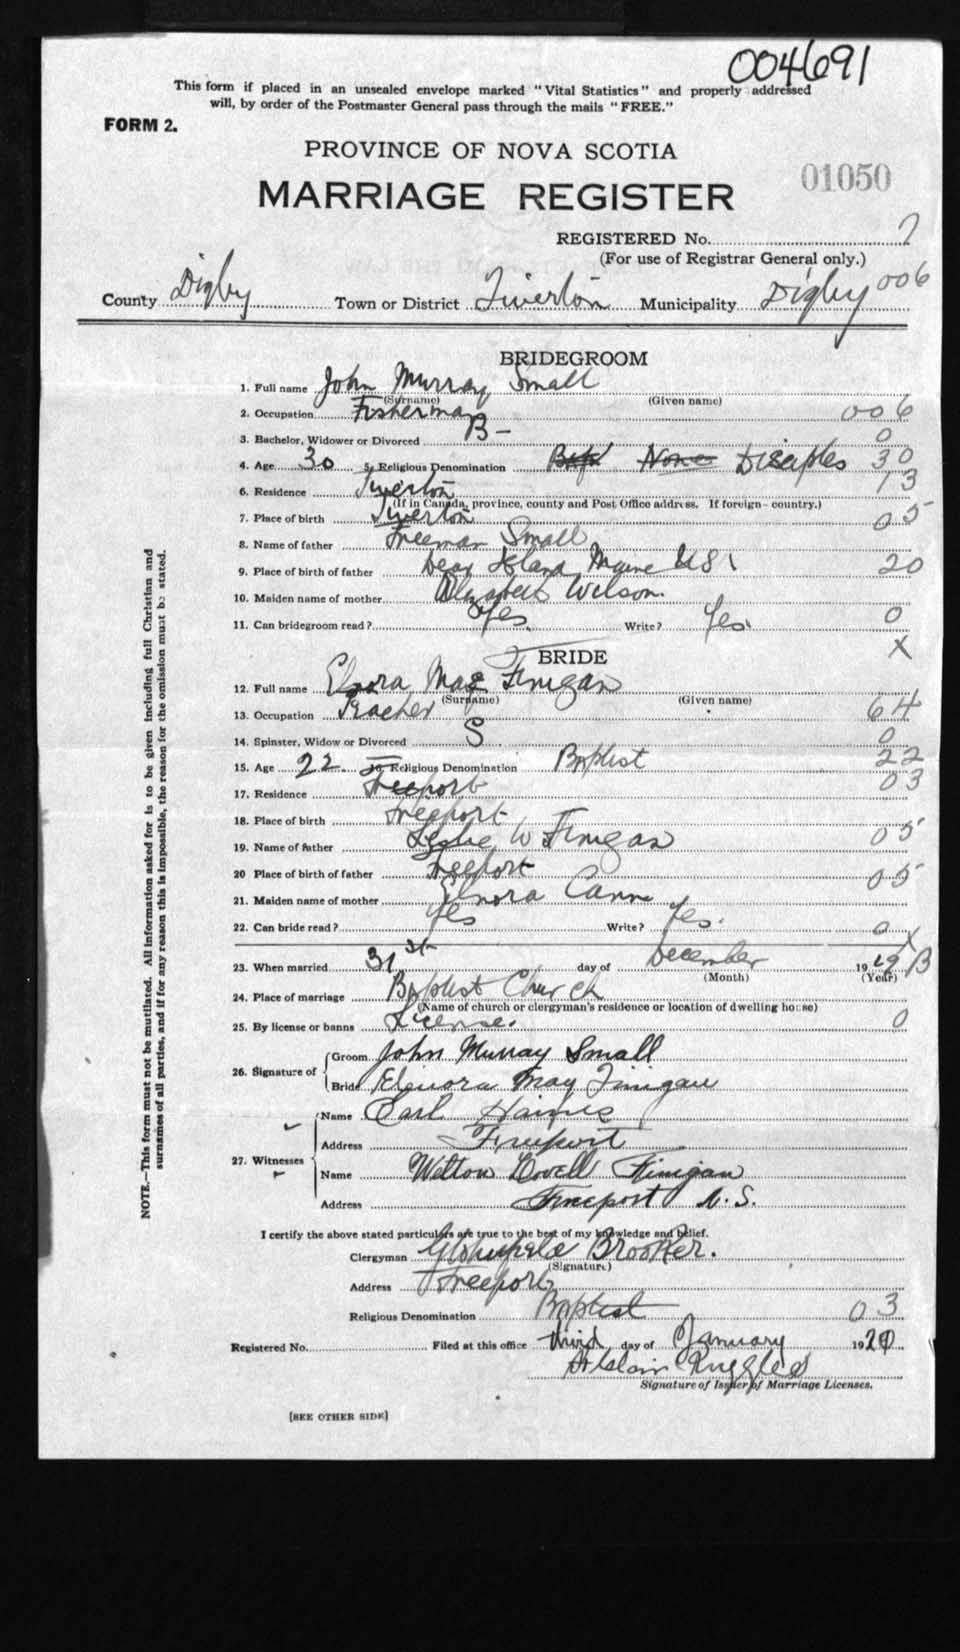 004691
This form if placed in an unsealed envelope marked "Vital Statistics" and properly addressed
will, by order of the Postmaster General pass through the mails "FREE."
FORM 2.
PROVINCE OF NOVA SCOTIA
01050
MARRIAGE REGISTER
REGISTERED No. 7
(For use of Registrar General only.)
006
County Digby Town or District Tiverton Municipality Digby
BRIDEGROOM
1. Full name John Murray Small
(Surname) (Given name)
2. Occupation Fisherman 006
3. Bachelor, Widower or Divorced B- 0
4. Age 30 5. Religious Denomination Bapt None Disciples 30
6. Residence Tiverton 13
(If in Canada, province, county and Post Office address. If foreign-country.)
7. Place of birth Tiverton 05
8. Name of father Freeman Small
9. Place of birth of father Dear Island Maine US 20
10. Maiden name of mother Elizabeth Wilson.
11. Can bridegroom read? Yes. Write? Yes. 0
X
BRIDE
12. Full name Elnora Mae Finigan
(Surname) (Given name)
13. Occupation Teacher 64
14. Spinster, Widow or Divorced S. 0
15. Age 22 16 Religious Denomination Baptist 22
17. Residence Freeport 03
18. Place of birth Freeport 05
19. Name of father Leslie W Finigan
20 Place of birth of father Freeport 05
21. Maiden name of mother Elnora Cann
22. Can bride read? Yes Write? Yes. 0 X
23. When married 31st day of December 1919 B
(Month) (Year)
24. Place of marriage Baptist Church
(Name of church or clergyman's residence or location of dwelling house)
25. By license or banns License. 0
26. Signature of
Groom John Murray Small
Bride Elenora May Finigan
27. Witnesses
Name Carl Haines
Address Freeport
Name Wilton Lovell Finigan
Address Freeport N.S.
I certify the above stated particulars are true to the best of my knowledge and belief.
Clergyman Brooker.
(Signature)
Address Freeport
Religious Denomination Baptist 03
Registered No. Filed at this office third day of January 1920
Ruggles
Signature of Issuer of Marriage Licenses.
[SEE OTHER SIDE]
NOTE.—This form must not be mutilated. All information asked for is to be given including full Christian and
surnames of all parties, and if for any reason this is impossible, the reason for the omission must be stated.